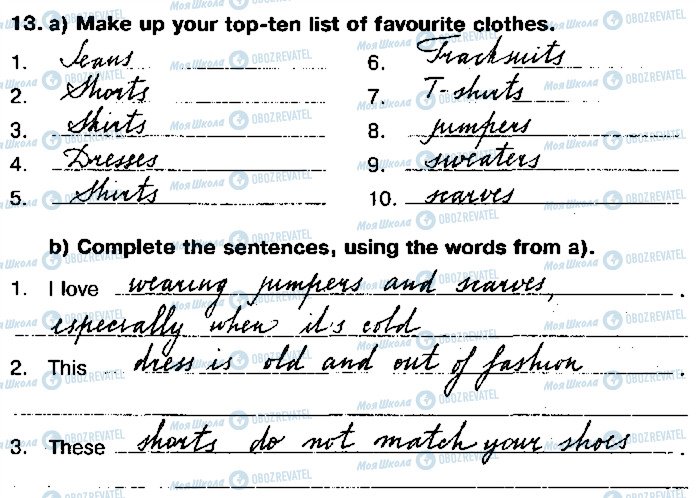 13. a) Make up your top-ten list of favourite clothes.
1. Jeans
2. Shorts
3. Skirts
4. Dresses
5. Shirts
6. Tracksuits
7. T-shirts
8. jumpers
9. sweaters
10. scarves
b) Complete the sentences, using the words from a).
1. I love wearing jumpers and scarves,
especially when it's cold.
2. This dress is old and out of fashion.
3. These shorts do not match your shoes.